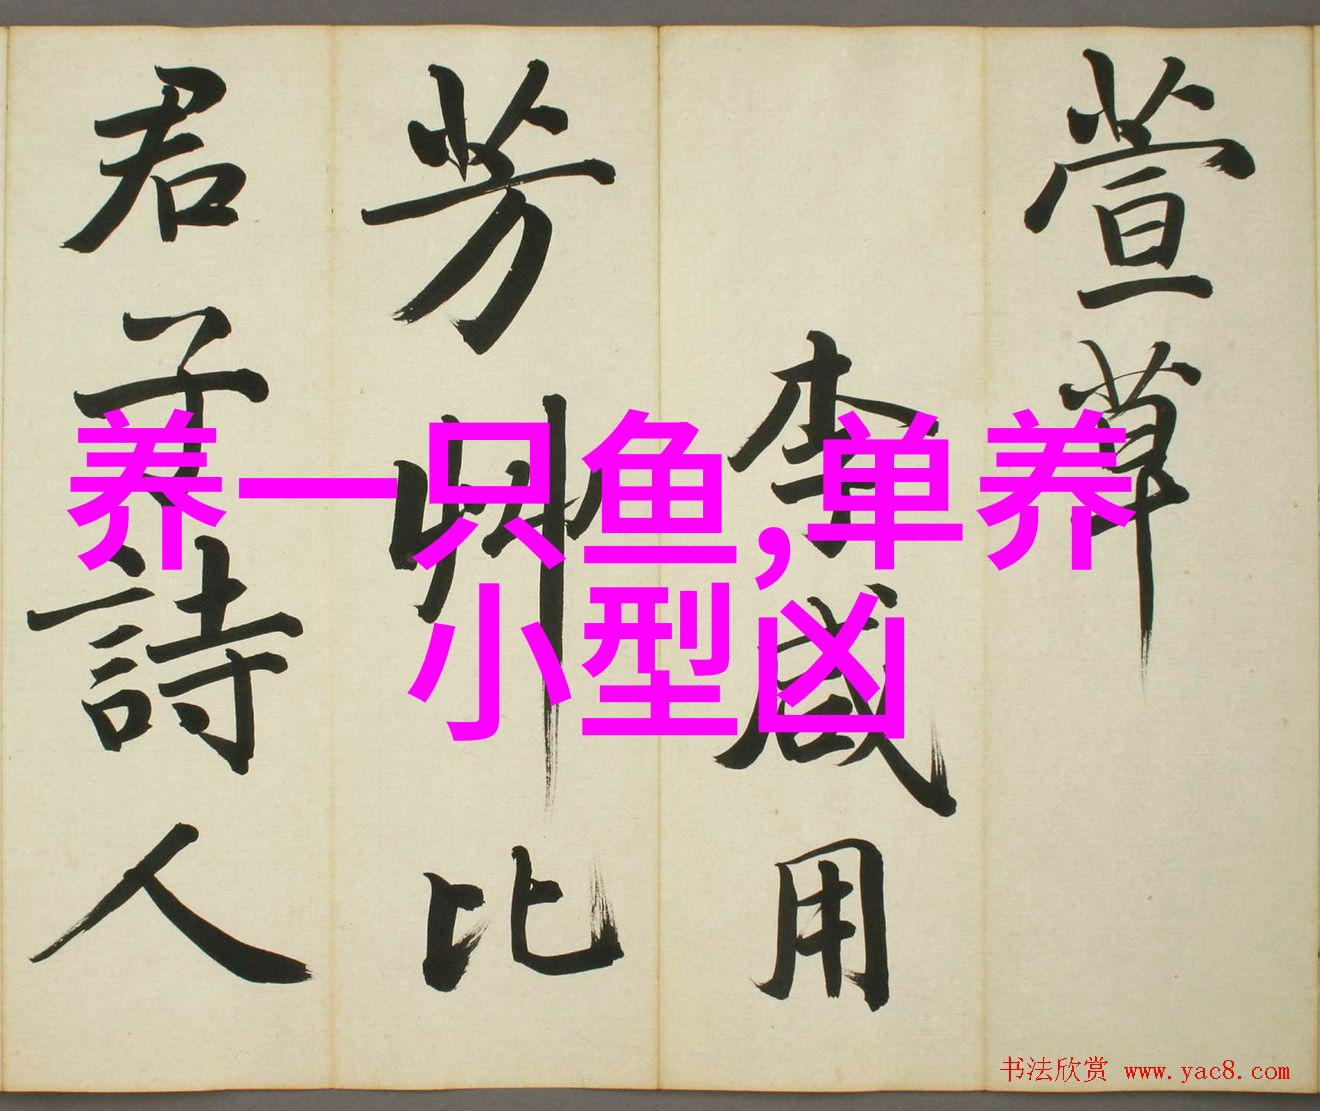 萱草
李咸用
芳艸比
君子詩人
养一只鱼,单养
小型凶
书法欣赏 www.yac8.com